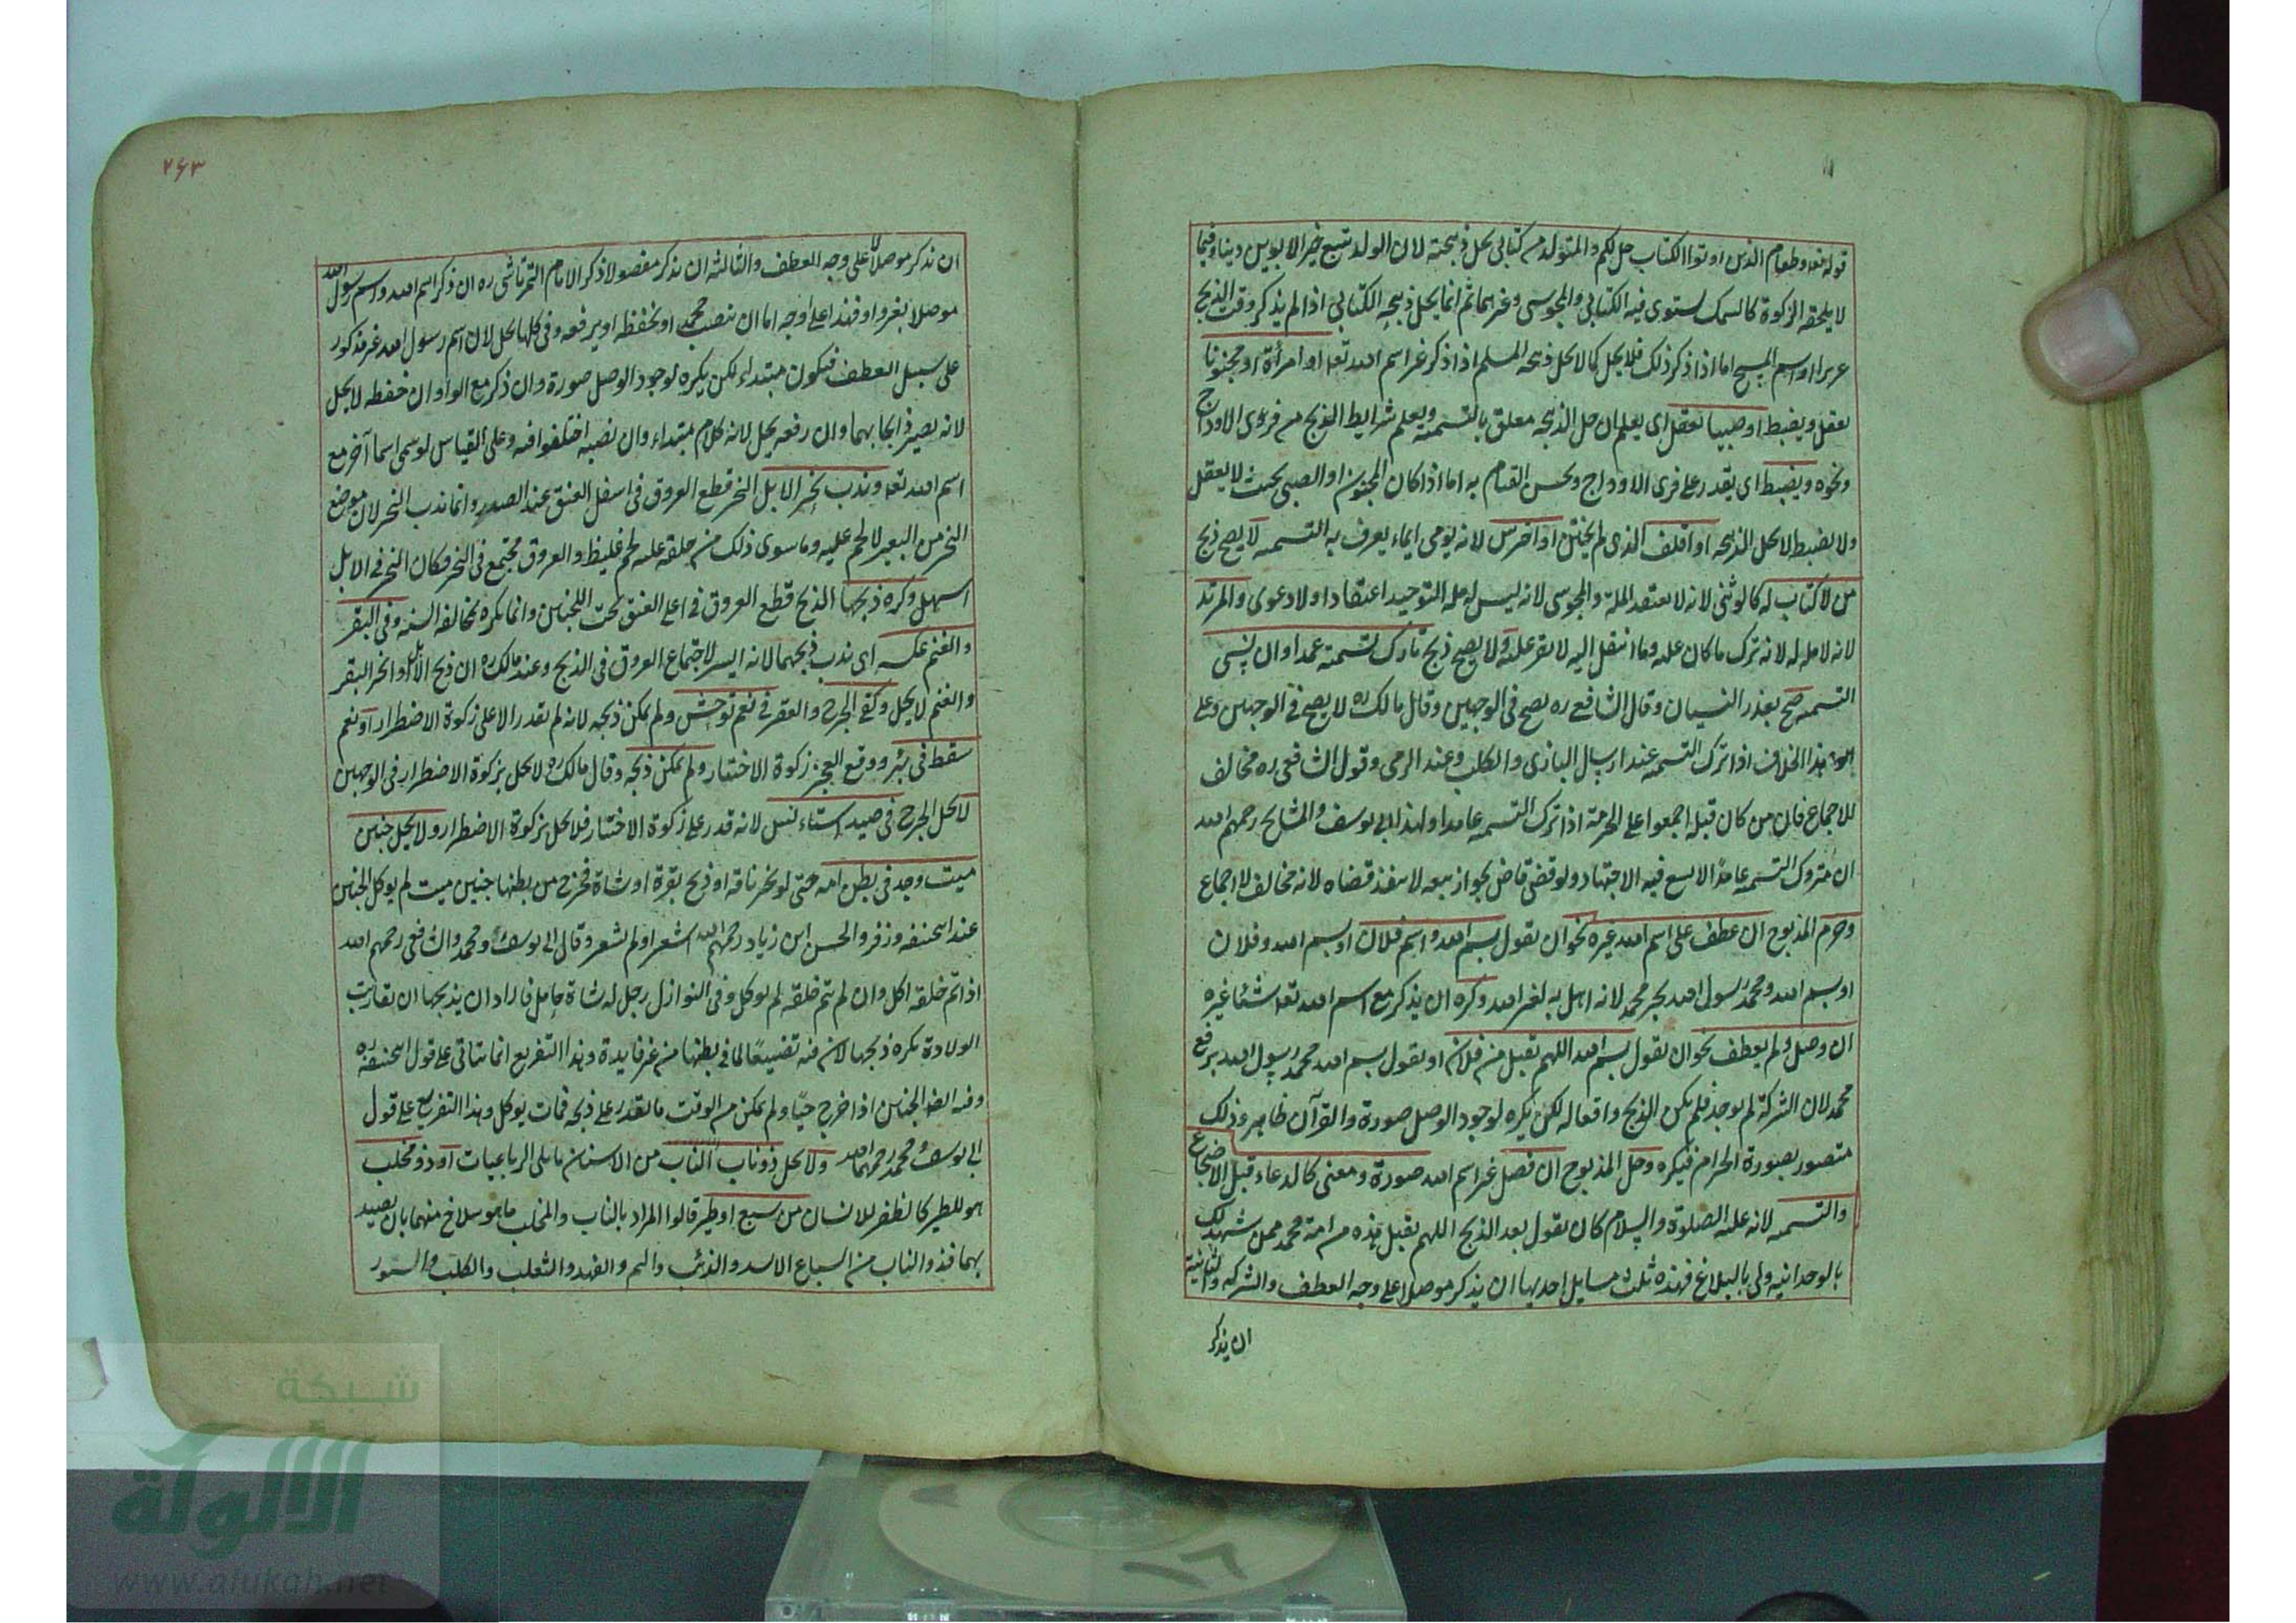 قوله تعه وطعام الذين اوتوا الكتاب حل لكم والمتولد من كتابى يحل ذبيحته لان الولد تبع خير الابوين دينا وفيما
لا يلحقه الزكوة كالسمك يستوى فيه الكتابى والمجوسى وغرهما ثم انما يحل ذبيحه الكتابى اذا لم يذكر وقت الذبح
عريرا او اسم المسيح اما اذا ذكر ذلك فلا يحل كما لا يحل ذبيحه المسلم اذا ذكر غر اسم الله تعه او امرأة او مجنونا
يعقل ويضبط او صبيا يعقل اى يعلم ان حل الذبيحه معلق بالتسمية ويعلم شرايط الذبح من فرى الاوداج
ونحوه ويضبط اى يقدر على فرى الاوداج ويحسن القيام به اما اذا كان المجنون او الصبى بحيث لا يعقل
ولا يضبط لا يحل الذبيحه او اقلف الذى لم يختتن او اخرس لانه يومى ايماء يعرف به التسميه لا يصح ذبح
من لا كتاب له كالوثنى لانه لا يعتقد الملة والمجوسى لانه ليس له مله التوحيد اعتقادا ولا دعوى والمرتد
لانه لا مله له لانه ترك ما كان عليه وما انتقل اليه لا يقر عليه ولا يصح ذبح تارك تسمية عمدا وان نسى
التسميه صح بعذر النسيان وقال الشافعى ره يصح فى الوجهين وقال مالك ره لا يصح فى الوجهين وعلى
هذا الخلاف اذا ترك التسميه عند ارسال البازى والكلب وعند الرمى وقول الشافعى ره مخالف
للاجماع فان من كان قبله اجمعوا على الحرمة اذا ترك التسميه عامدا ولهذا ابى يوسف والمشايخ رحمهم الله
ان متروك التسميه عامدًا لا يسع فيه الاجتهاد ولو قضى قاض بجواز بيعه لا ينفذ قضاه لانه مخالف لا جماع
وحرم المذبوح ان عطف على اسم الله غيره نحو ان يقول بسم الله واسم فلان او بسم الله وفلان
او بسم الله ومحمد رسول الله بجر محمد لانه اهل به لغر الله وكره ان يذكر مع اسم الله تعه شئا غيره
ان وصل ولم يعطف نحو ان يقول بسم الله اللهم تقبل من فلان او يقول بسم الله محمد رسول الله برفع
محمد لان الشركة لم يوجد فلم يكن الذبح واقعا له لكن يكره لوجود الوصل صورة والقرآن ظاهر وذلك
متصور بصورة الحرام فيكره وحل المذبوح ان فصل غر اسم الله صورة ومعنى كالدعاء قبل الاضجاع
والتسميه لانه عليه الصلوة والسلام كان يقول بعد الذبح اللهم تقبل هذه من امة محمد ممن شهد لك
بالوحدانيه ولى بالبلاغ فهذه ثلث مسايل احديها ان يذكر موصلا على وجه العطف والشركه والثانية
ان يذكر
۲۶۳
ان يذكر موصلًا لا على وجه العطف والثالثه ان يذكر مفصولا ذكر الامام التمرتاشى ره ان ذكر اسم الله واسم رسول الله
موصلا بغر واو فهذا على اوجه اما ان ينصب محمد او يخفظه او يرفعه وفى كلها يحل لان اسم رسول الله غر مذكور
على سبيل العطف فيكون مبتداء لكن يكره لوجود الوصل صورة وان ذكر مع الواو ان خفظه لا يحل
لانه يصير ذابحا بهما وان رفعه يحل لانه كلام مبتداء وان نصبه اختلفوا فيه وعلى القياس لو سمى اسما آخر مع
اسم الله تعه وندب نحر الابل النحر قطع العروق فى اسفل العنق عند الصدر وانما ندب النحر لان موضع
النحر من البعير لا لحم عليه وما سوى ذلك من حلقه عليه لحم غليظ والعروق مجتمع فى النحر فكان النحر فى الابل
اسهل وكره ذبحها الذبح قطع العروق فى اعلى العنق تحت اللحيين وانما يكره لمخالفه السنه وفى البقر
والغنم عكسه اى ندب ذبحهما لانه ايسر لاجتماع العروق فى الذبح وعند مالك ره ان ذبح الابل او نحر البقر
والغنم لا يحل وكفى الجرح والعقر فى نعم توحش ولم يمكن ذبحه لانه لم يقدر الا على زكوة الاضطرار او نعم
سقط فى بئر ووقع العجز زكوة الاختيار ولم يمكن ذبحه وقال مالك ره لا يحل بزكوة الاضطرار فى الوجهين
لا يحل الجرح فى صيد استانس لانه قدر على زكوة الاختيار فلا يحل بزكوة الاضطرار ولا يحل جنين
ميت وجد فى بطن امه حتى لو نحر ناقه او ذبح بقرة او شاة فخرج من بطنها جنين ميت لم يوكل الجنين
عند ابيحنيفه وزفر والحسن ابن زياد رحمهم الله اشعر او لم يشعر وقال ابى يوسف ومحمد والشافعى رحمهم الله
اذا تم خلقه اكل وان لم يتم خلقه لم يوكل وفى النوازل رجل له شاة حامل فاراد ان يذبحها ان تقاربت
الولادة يكره ذبحها لان فيه تضييعًا لما فى بطنها من غر فايدة وهذا التفريع انما يتاتى على قول ابيحنيفه ره
وفيه ايضا الجنين اذا خرج حيًا ولم يمكن من الوقت ما يقدر على ذبحه فمات يوكل وهذا التفريع على قول
ابى يوسف ومحمد رحمهما الله ولا يحل ذوناب الناب من الاسنان ما يلى الرباعيات او ذو مخلب
هو للطير كالظفر للانسان من سبع او طير قالوا المراد بالناب والمخلب ما هو سلاح منهما بان يصيد
بهما فذو الناب من السباع الاسد والذئب والنمر والفهد والثعلب والكلب والسنور
شبكة
الألوكة
www.alukah.net